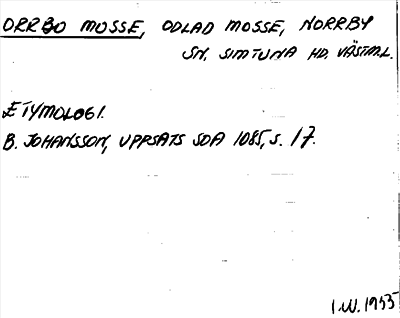 ORRBO MOSSE, ODLAD MOSSE, NORRBY
SN, SIMTUNA HD. VÄSTM.L.
ETYMOLOGI.
B. JOHANSSON, UPPSATS SOA 1085, S. 17.
I.W. 1955